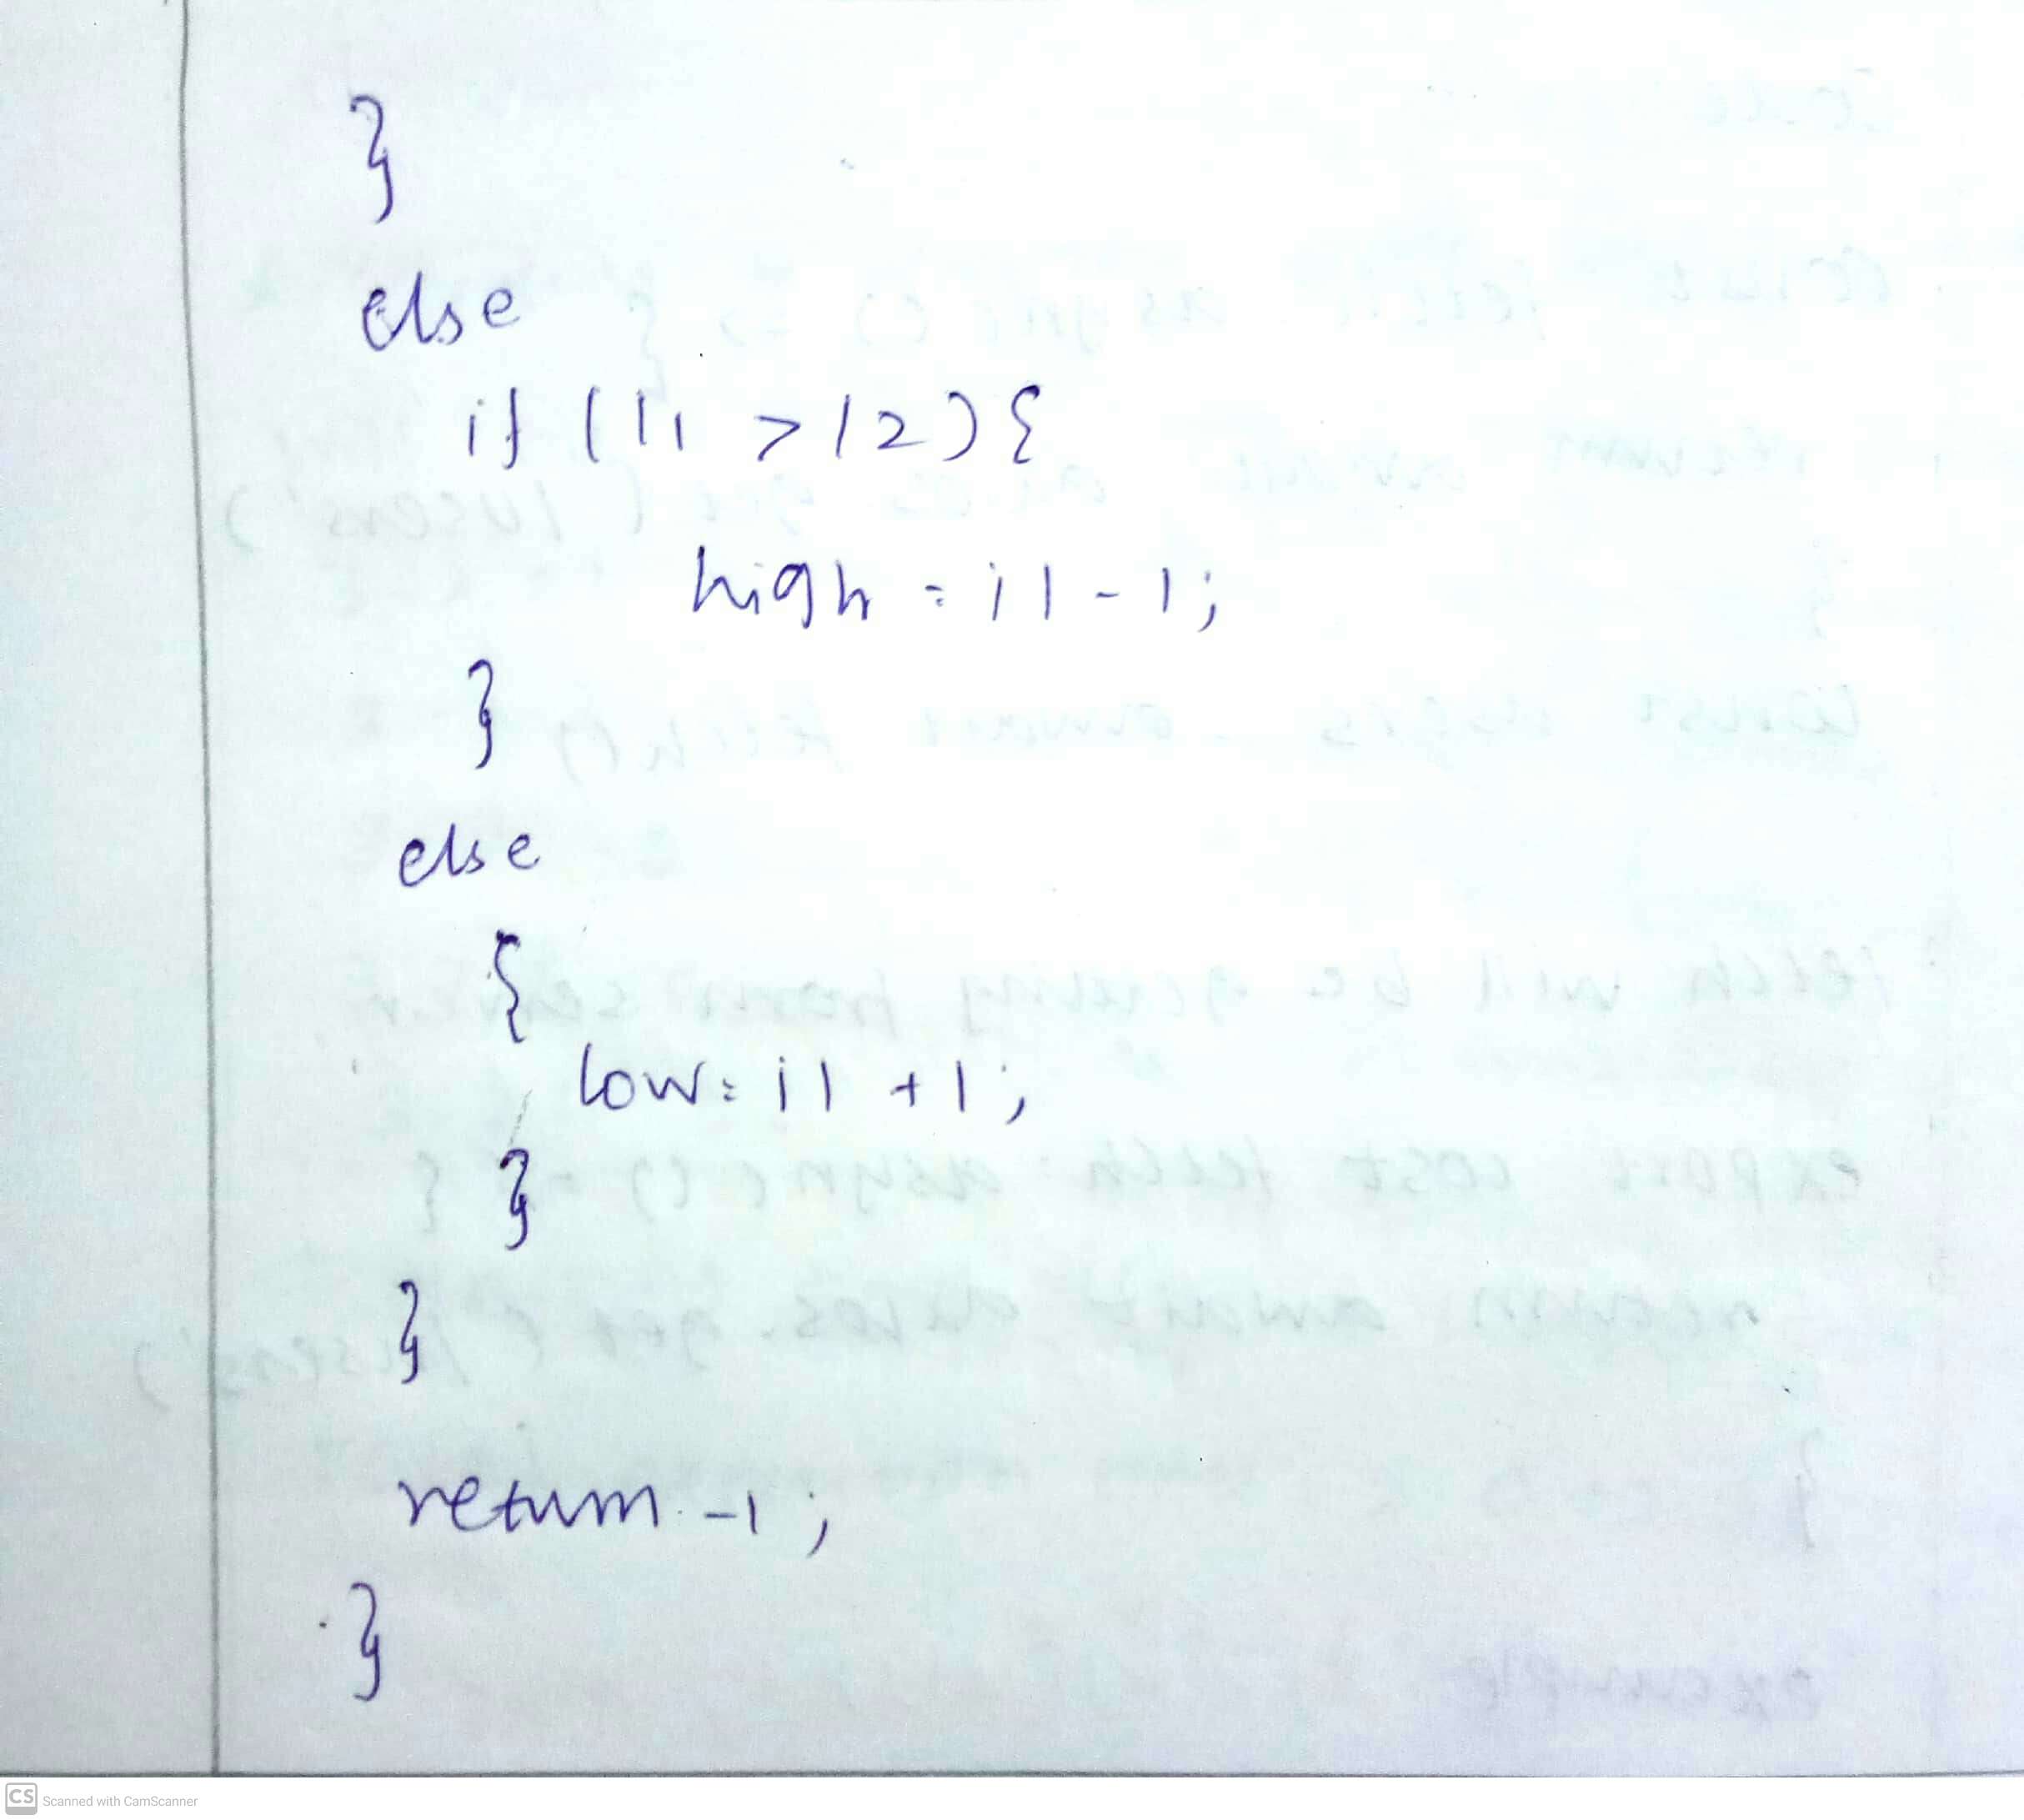 }
else
if (l1 > l2) {
high = i1 - 1;
}
else
{
low = i1 + 1;
}
}
return -1;
}
CS Scanned with CamScanner